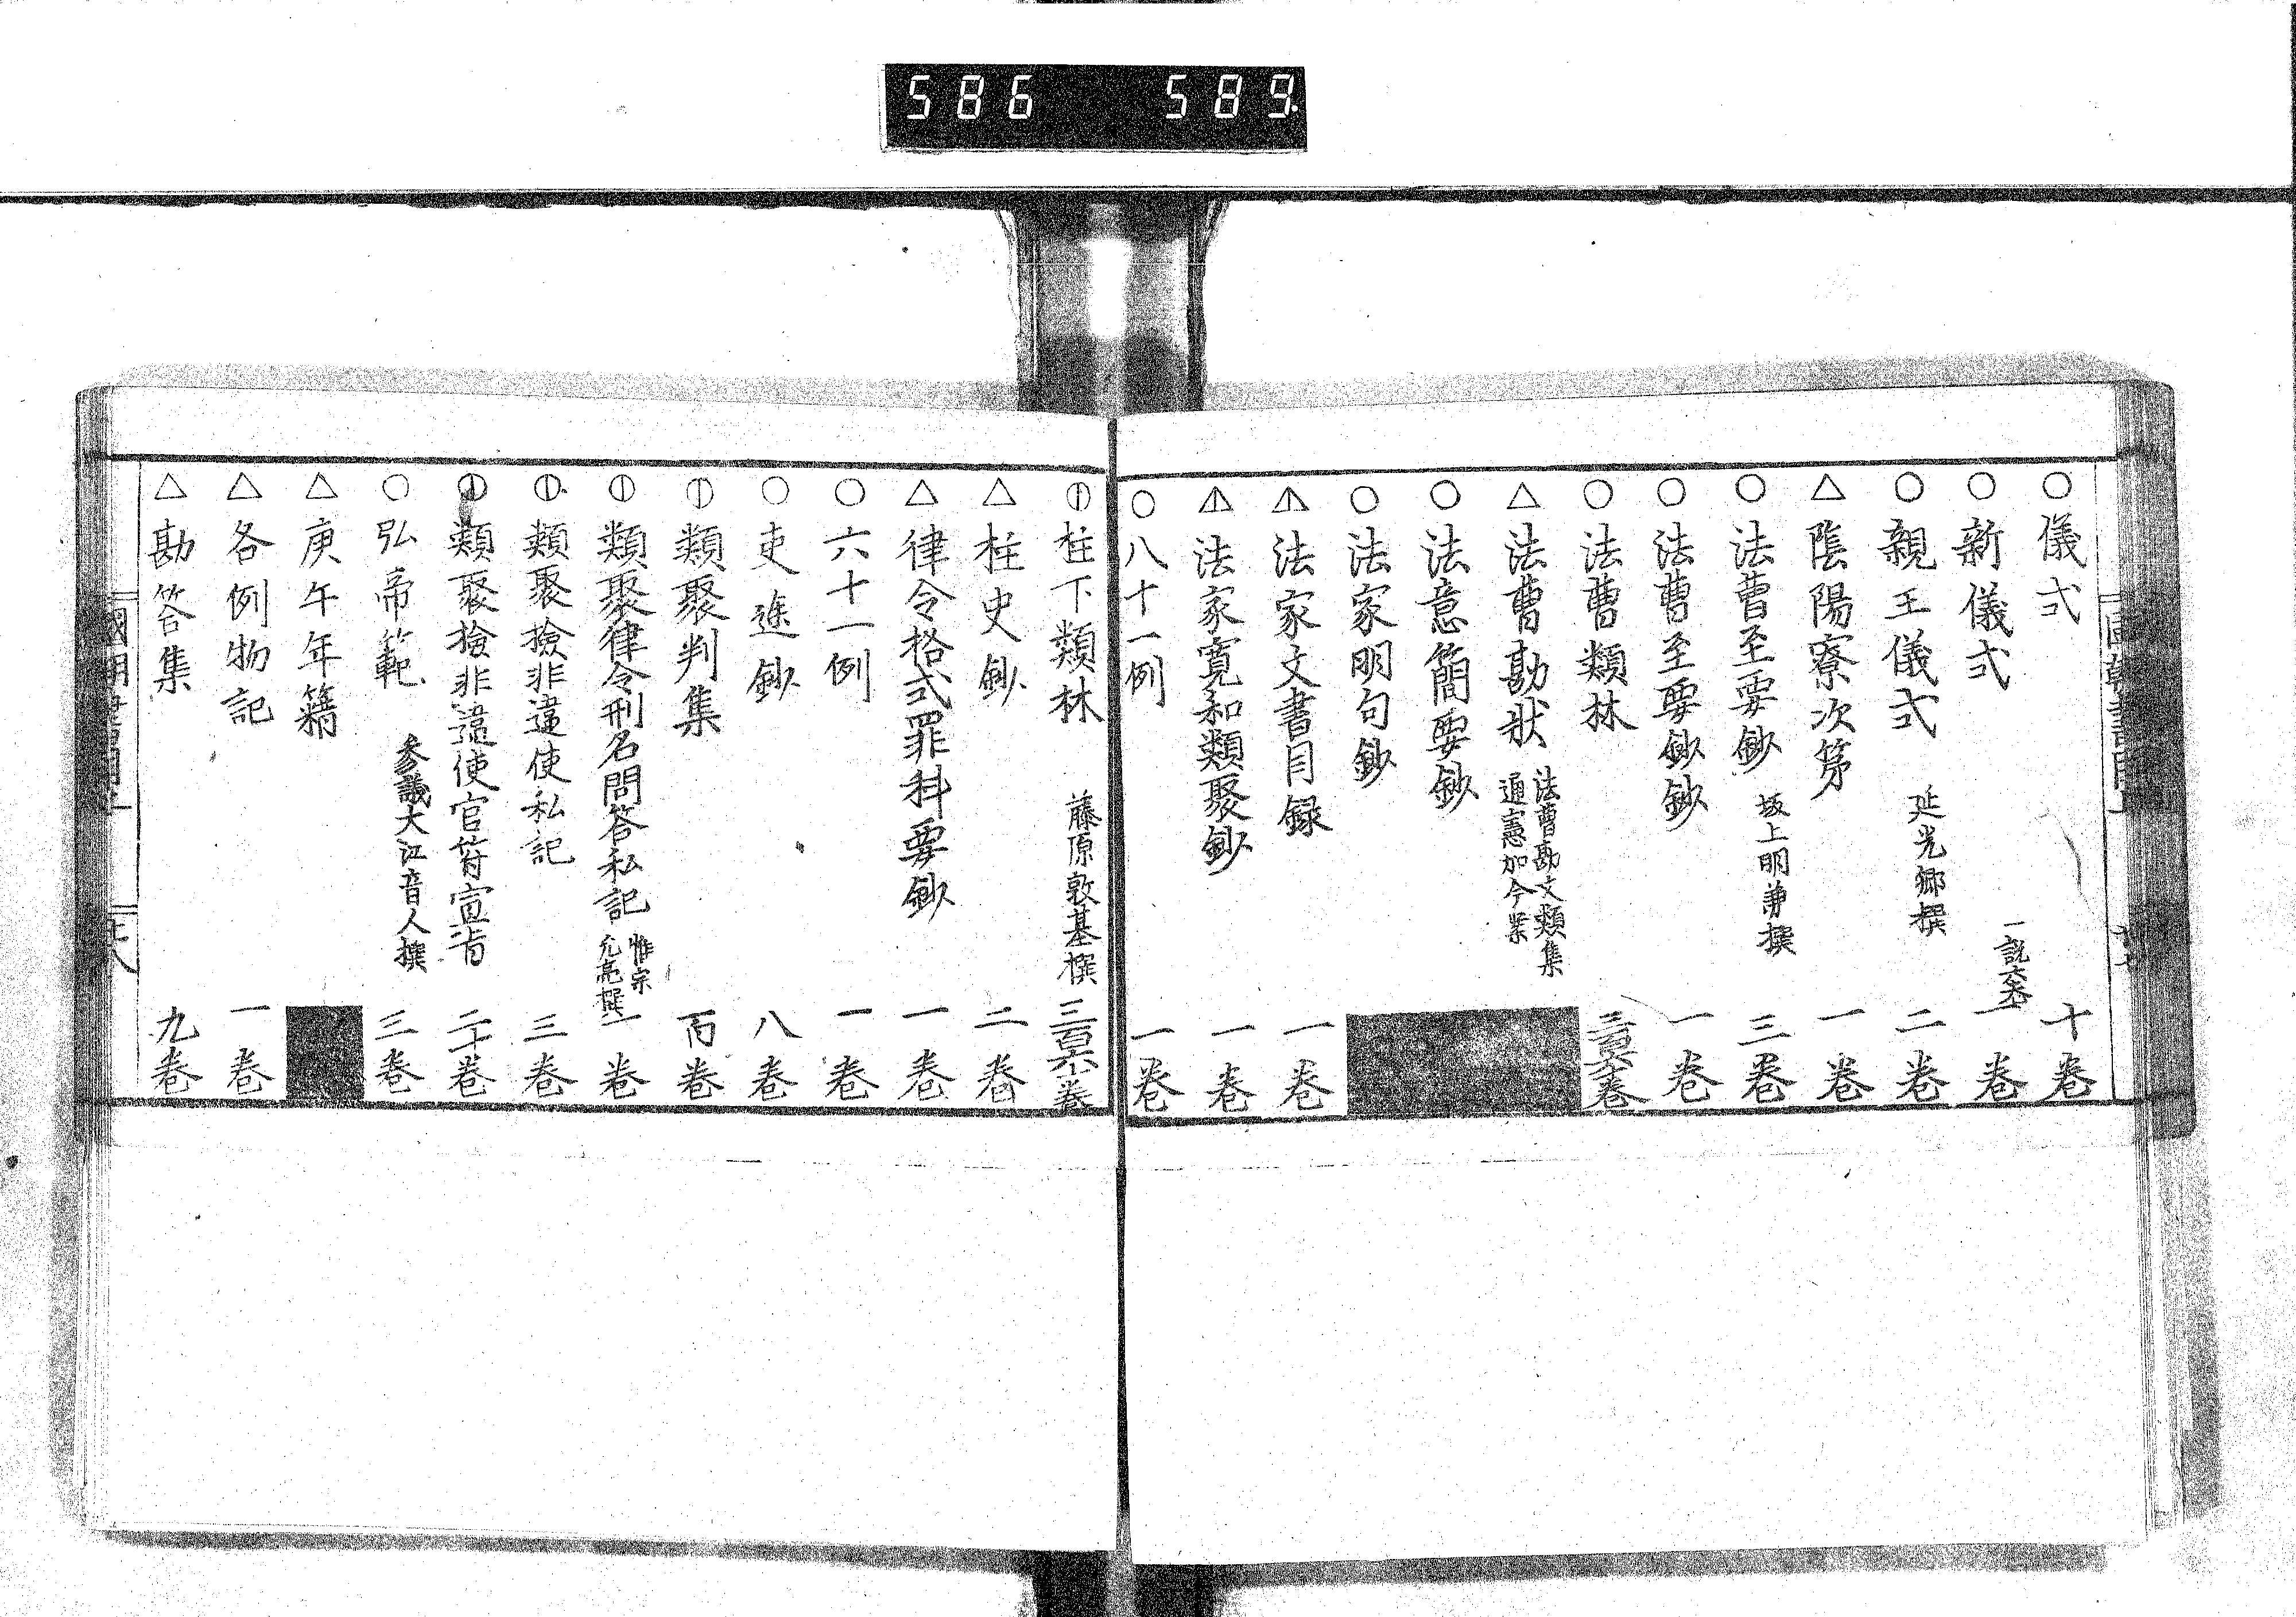 586 589
○儀式 十卷
○新儀式 一説六 一卷
○親王儀式 延光卿撰 二卷
△陰陽寮次第 一卷
○法曹至要鈔 坂上明兼撰 三卷
○法曹至要鈔鈔 一卷
○法曹類林 卷
△法曹勘状 法曹勘文類集
通憲加今案
○法意簡要鈔
○法家明句鈔
法家文書目録 一卷
法家寛和類聚鈔 一卷
○八十一例 一卷
柱下類林 藤原敦基撰 三百六十卷
△柱史鈔 二卷
△律令格式罪科要鈔 一卷
○六十一例 一卷
○吏途鈔 八卷
類聚判集 百卷
類聚律令刑名問答私記 惟宗
允亮撰 一卷
類聚撿非違使私記 三卷
類聚撿非違使官符宣旨 二十卷
○弘帝範 参議大江音人撰 三卷
△庚午年籍
△各例物記 一卷
△勘答集 九卷